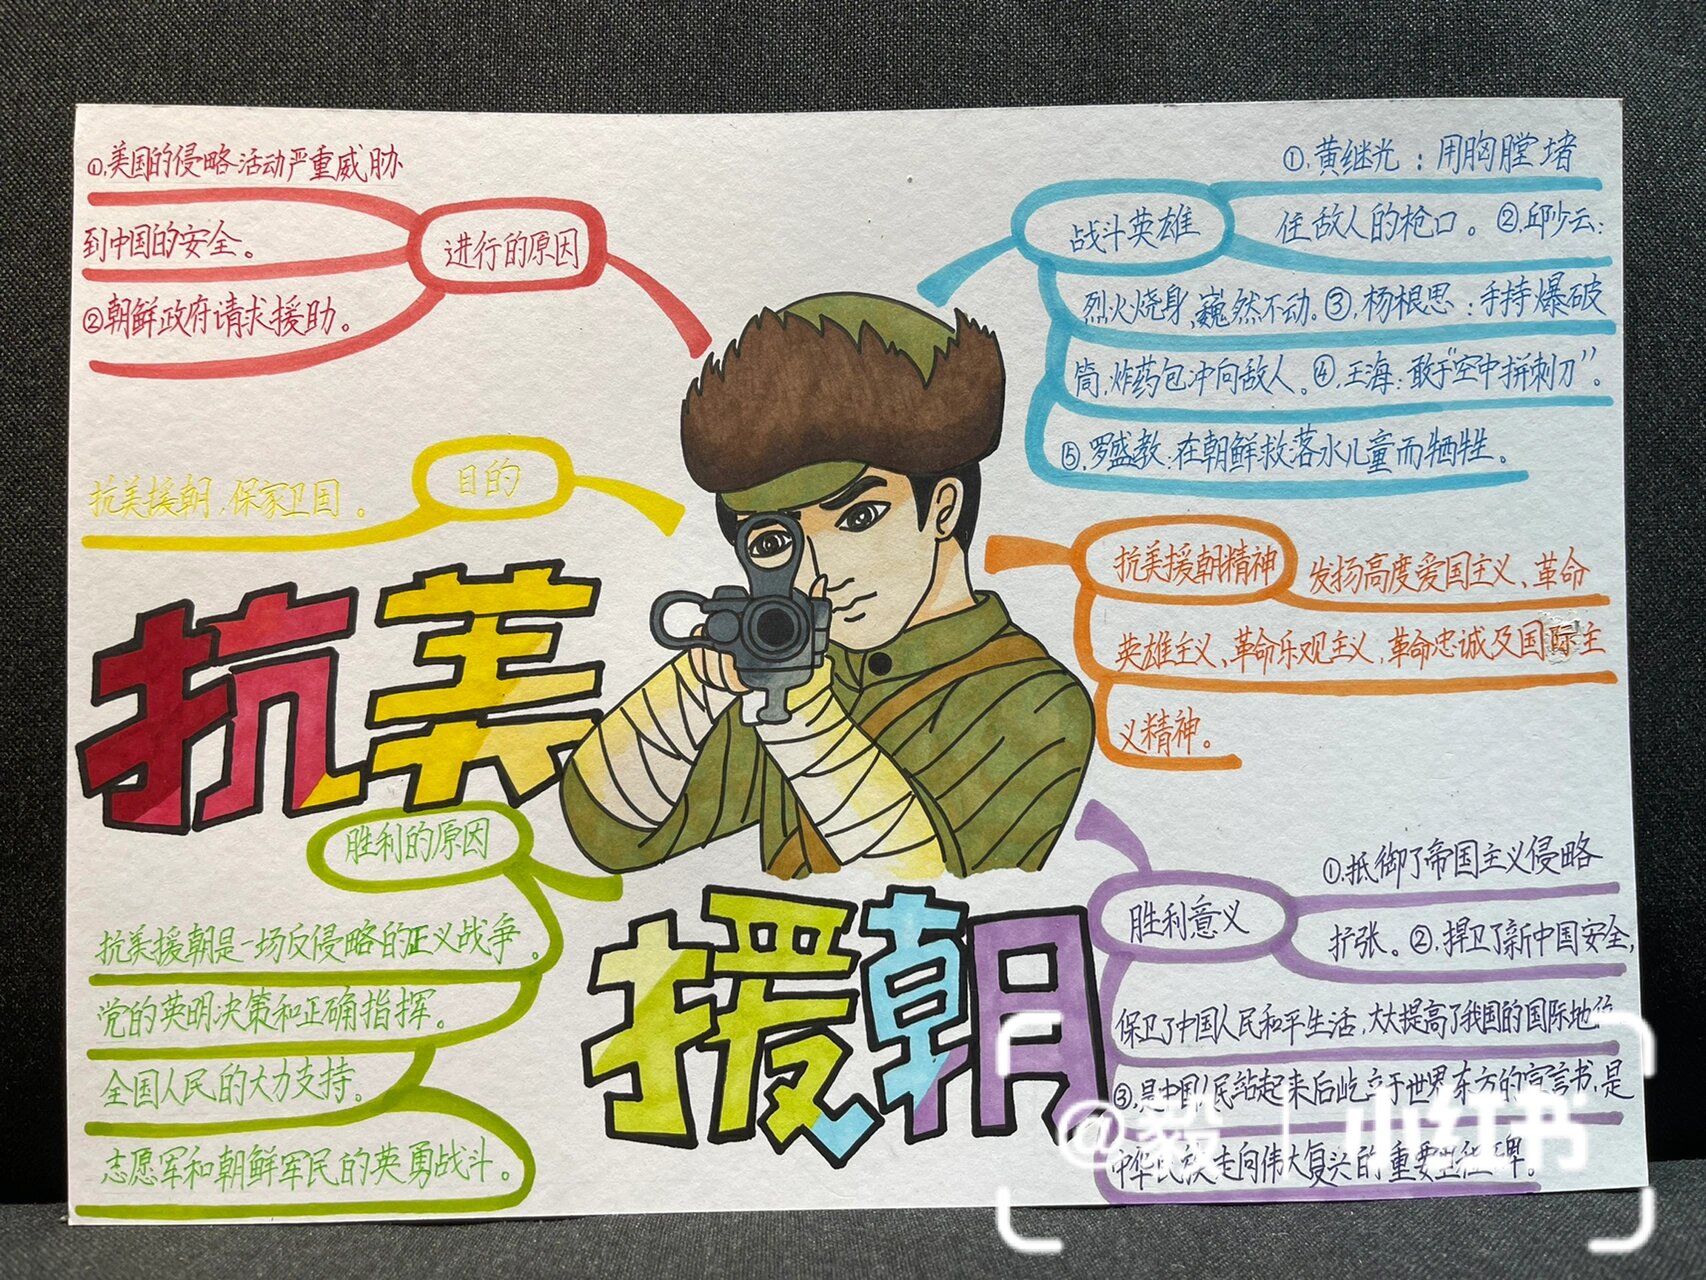 ①.美国的侵略活动严重威胁
到中国的安全。
②朝鲜政府请求援助。
进行的原因
目的
抗美援朝,保家卫国。
抗美
胜利的原因
抗美援朝是一场反侵略的正义战争。
党的英明决策和正确指挥。
全国人民的大力支持。
志愿军和朝鲜军民的英勇战斗。
援朝
战斗英雄
①.黄继光:用胸膛堵
住敌人的枪口。②.邱少云:
烈火烧身,巍然不动.③.杨根思:手持爆破
筒,炸药包冲向敌人。④.王海:敢于“空中拼刺刀”。
⑤.罗盛教:在朝鲜救落水儿童而牺牲。
抗美援朝精神
发扬高度爱国主义、革命
英雄主义、革命乐观主义,革命忠诚及国际主
义精神。
胜利意义
①.抵御了帝国主义侵略
扩张。②.捍卫了新中国安全,
保卫了中国人民和平生活,大大提高了我国的国际地位
③.是中国人民站起来后屹立于世界东方的宣言书,是
中华民族走向伟大复兴的重要里程碑。
@毅 小红书